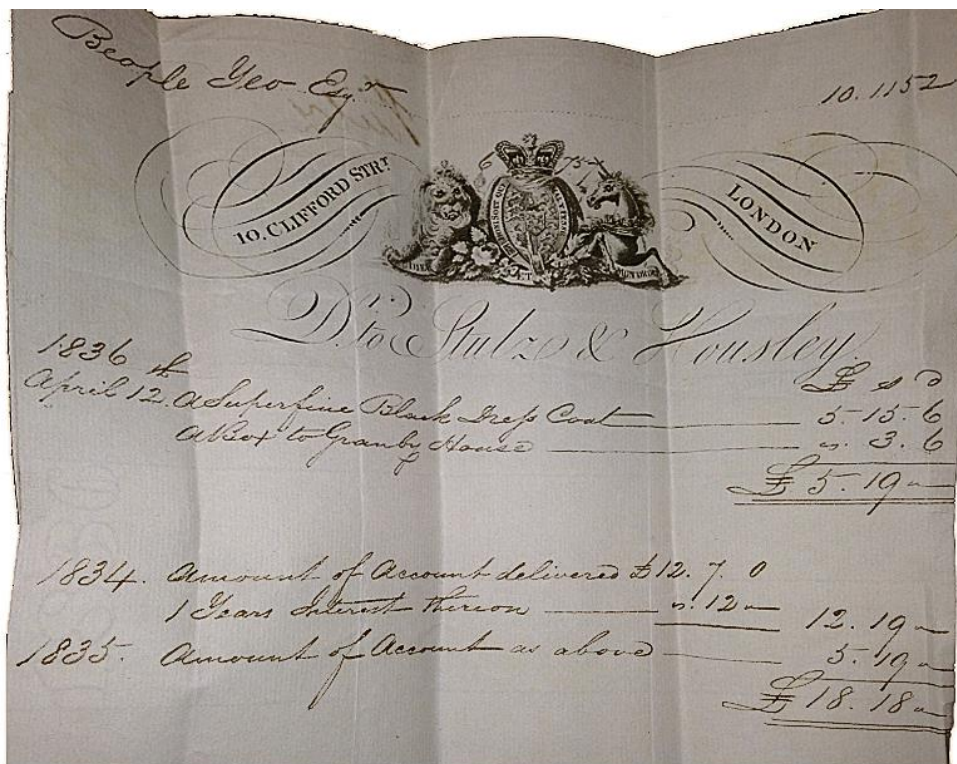 Beaple Geo Esqr
10.1152
10. CLIFFORD STRT
LONDON
HONI SOIT QUI MAL Y PENSE
DIEU ET MON DROIT
Dr. to Stulz & Housley.
1836
£ s D
April 12.th A Superfine Black Dress Coat 5.15.6
A Box to Granby House ". 3.6
£ 5.19 "
1834. Amount of Account delivered £12.7.0
1 Years Interest thereon ". 12 " 12.19 "
1835. Amount of Account as above 5.19 "
£ 18.18 "